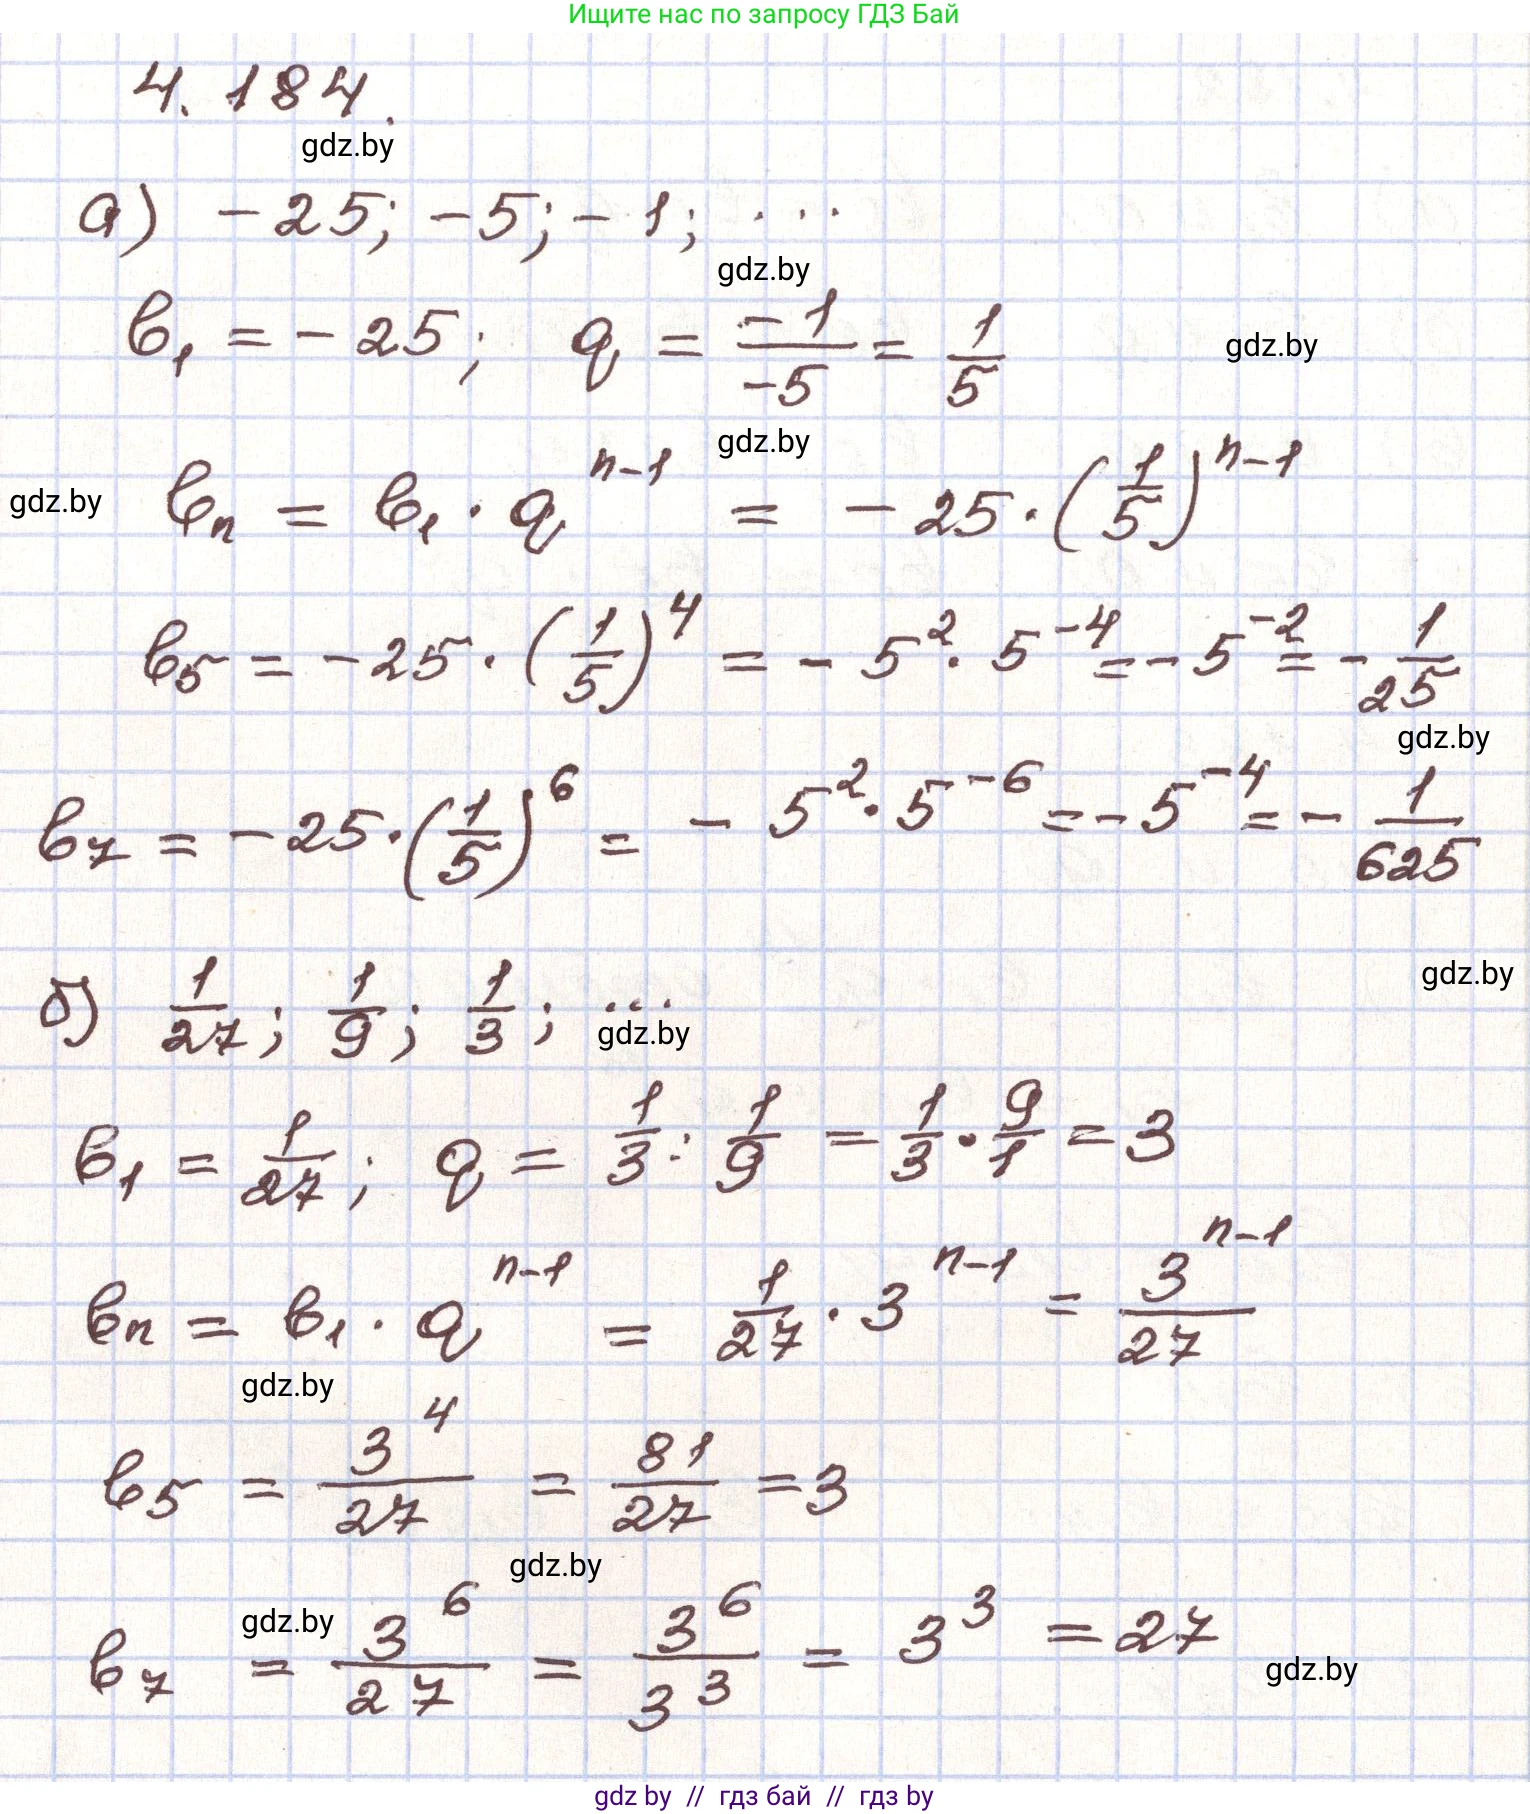 Ищите нас по запросу ГДЗ Бай
4.184.
gdz.by
а) -25; -5; -1; ...
gdz.by
b₁ = -25; q = -1/-5 = 1/5
gdz.by
gdz.by
gdz.by
bₙ = b₁ · q^(n-1) = -25 · (1/5)^(n-1)
b₅ = -25 · (1/5)^4 = -5^2 · 5^-4 = -5^-2 = -1/25
gdz.by
b₇ = -25 · (1/5)^6 = -5^2 · 5^-6 = -5^-4 = -1/625
gdz.by
б) 1/27; 1/9; 1/3; ...
gdz.by
b₁ = 1/27; q = 1/3 : 1/9 = 1/3 · 9/1 = 3
bₙ = b₁ · q^(n-1) = 1/27 · 3^(n-1) = 3^(n-1)/27
gdz.by
b₅ = 3^4/27 = 81/27 = 3
gdz.by
gdz.by
b₇ = 3^6/27 = 3^6/3^3 = 3^3 = 27
gdz.by
gdz by // гдз бай // гдз by